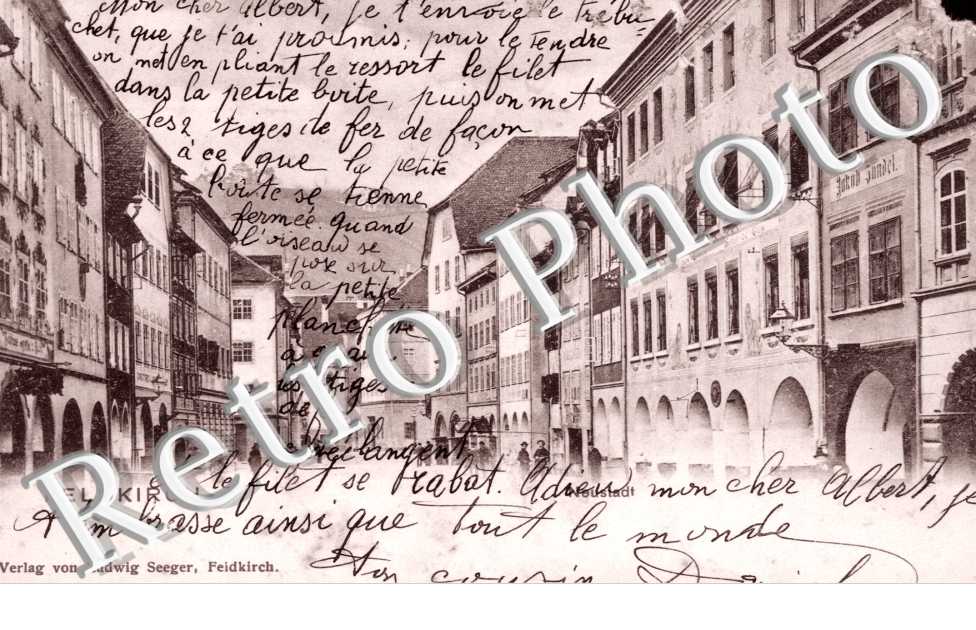 Mon cher Albert, je t'envoie le trébu
chet, que je t'ai proumis; pour le tendre
on met en pliant le ressort le filet
dans la petite boite, puis on met
les 2 tiges de fer de façon
à ce que la petite
boite se tienne
fermée quand
l'oiseau se
pose sur
la petite
planchette
tiges
de
et le filet se rabat. Adieu mon cher Albert, je
t'embrasse ainsi que tout le monde
Ton cousin
Jakob Jundel.
FELDKIRCH
Neustadt
Verlag von Ludwig Seeger, Feldkirch.
Retro Photo